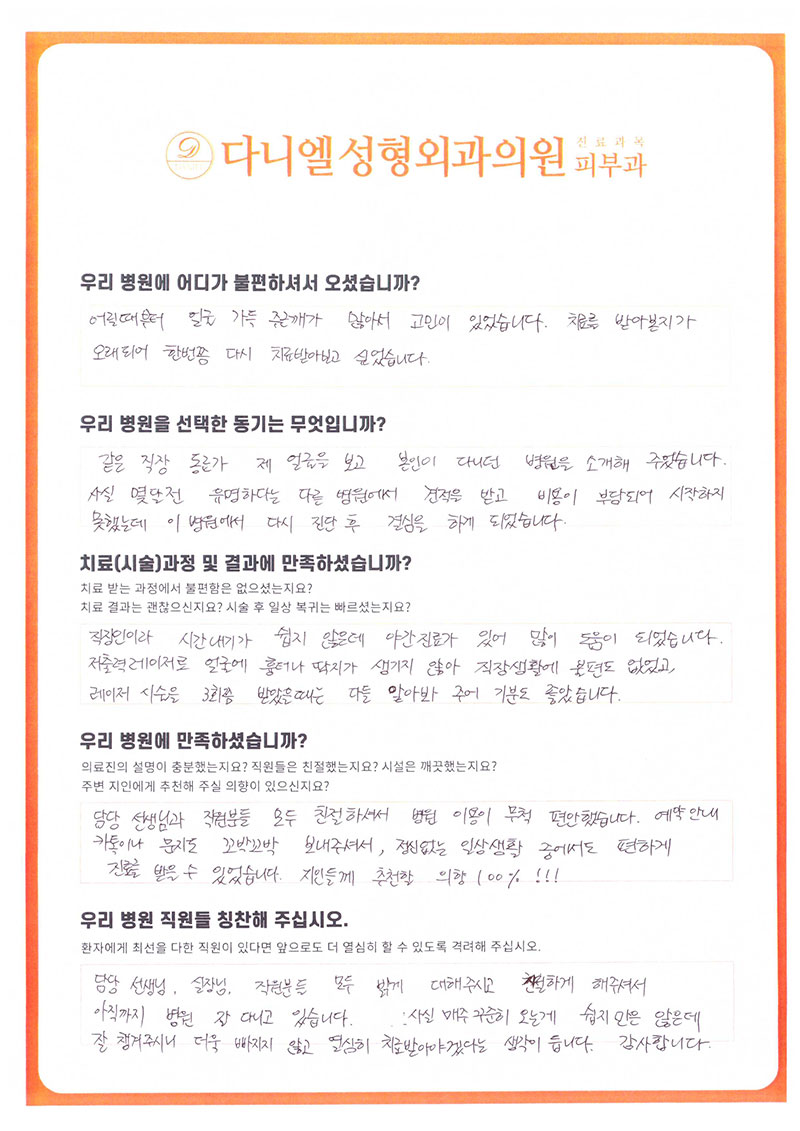 다니엘성형외과의원 진료과목 피부과
우리 병원에 어디가 불편하셔서 오셨습니까?
어릴때부터 얼굴 가득 주근깨가 많아서 고민이 있었습니다. 치료를 받아본지가
오래되어 한번쯤 다시 치료받아보고 싶었습니다.
우리 병원을 선택한 동기는 무엇입니까?
같은 직장 동료가 제 얼굴을 보고 본인이 다니던 병원을 소개해 주었습니다.
사실 몇달전 유명하다는 다른 병원에서 견적을 받고 비용이 부담되어 시작하지
못했는데 이 병원에서 다시 진단 후 결심을 하게 되었습니다.
치료(시술)과정 및 결과에 만족하셨습니까?
치료 받는 과정에서 불편함은 없으셨는지요?
치료 결과는 괜찮으신지요? 시술 후 일상 복귀는 빠르셨는지요?
직장인이라 시간내기가 쉽지 않은데 야간진료가 있어 많이 도움이 되었습니다.
저출력레이저로 얼굴에 흉터나 딱지가 생기지 않아 직장생활에 불편도 없었고,
레이저 시술을 3회쯤 받았을때는 다들 알아봐 주어 기분도 좋았습니다.
우리 병원에 만족하셨습니까?
의료진의 설명이 충분했는지요? 직원들은 친절했는지요? 시설은 깨끗했는지요?
주변 지인에게 추천해 주실 의향이 있으신지요?
담당 선생님과 직원분들 모두 친절하셔서 병원 이용이 무척 편안했습니다. 예약안내
카톡이나 문자도 꼬박꼬박 보내주셔서, 정신없는 일상생활 중에서도 편하게
진료를 받을 수 있었습니다. 지인들께 추천할 의향 100% !!!
우리 병원 직원들 칭찬해 주십시오.
환자에게 최선을 다한 직원이 있다면 앞으로도 더 열심히 할 수 있도록 격려해 주십시오.
담당 선생님, 실장님, 직원분들 모두 밝게 대해주시고 친절하게 해주셔서
아직까지 병원 잘 다니고 있습니다. 사실 매주 꾸준히 오는게 쉽지만은 않은데
잘 챙겨주시니 더욱 빠지지 않고 열심히 치료받아야겠다는 생각이 듭니다. 감사합니다.